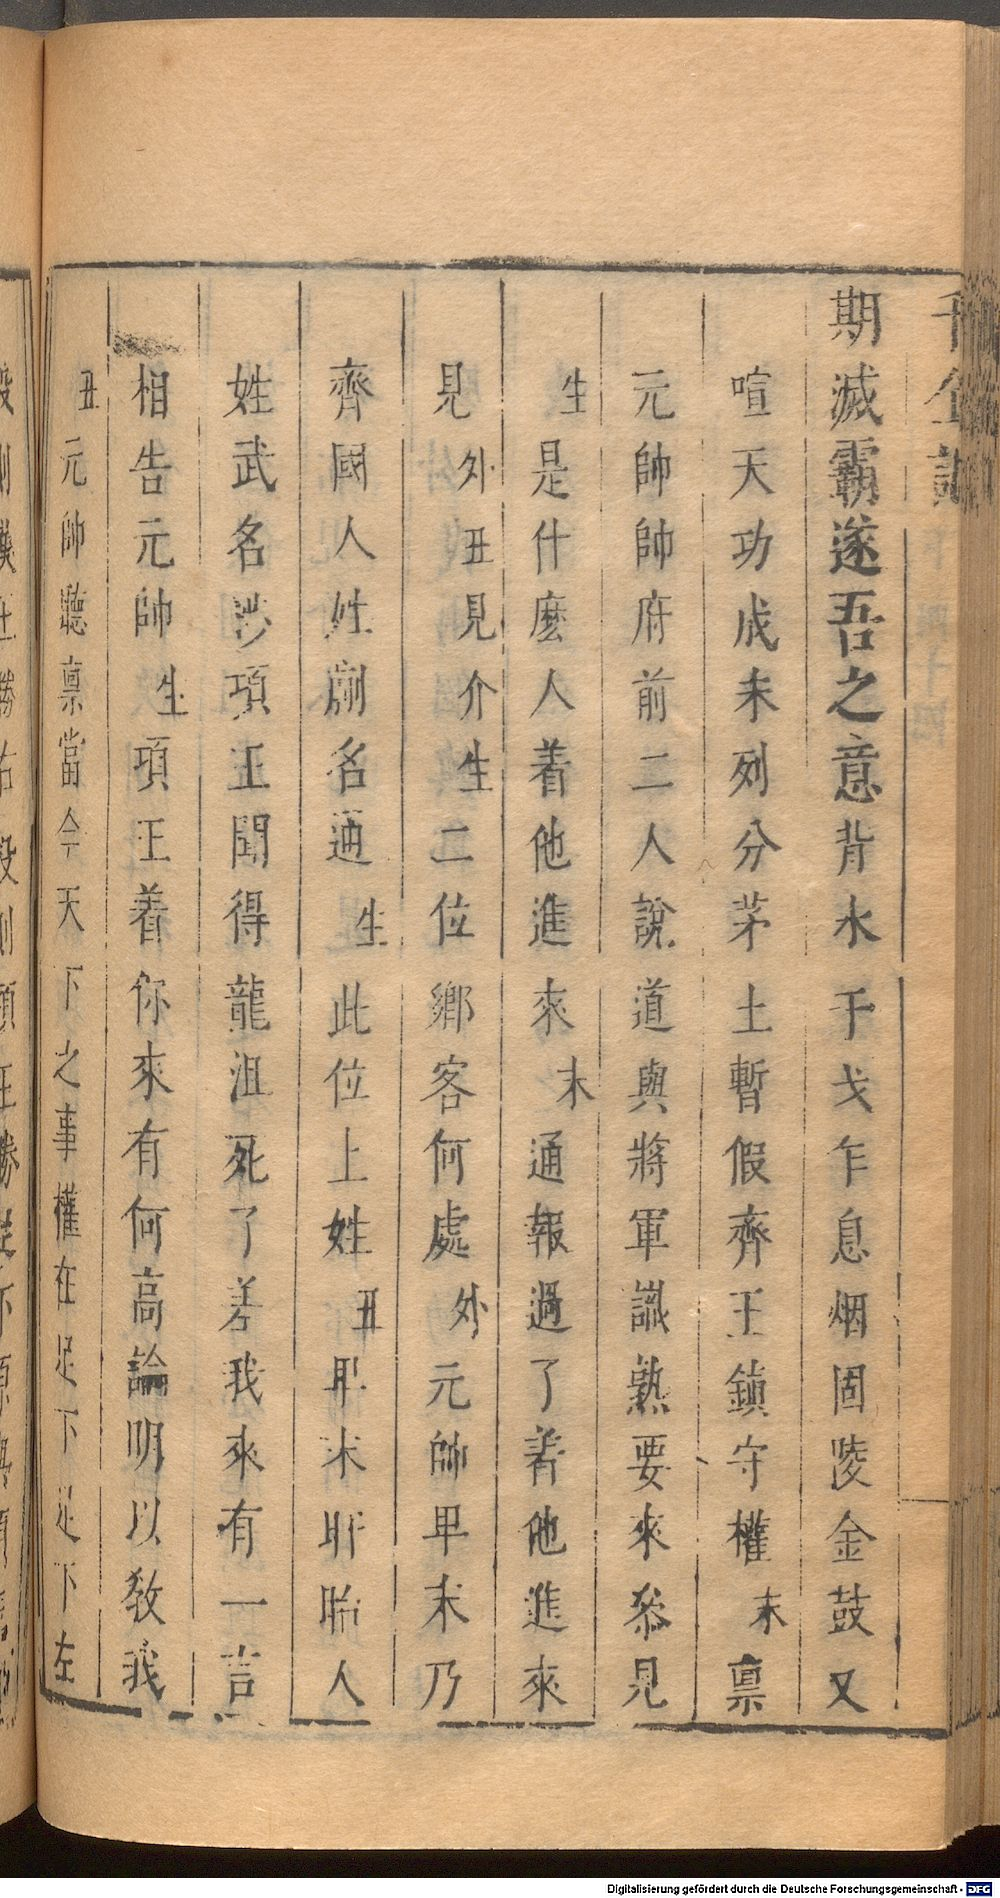 千金記
期滅霸遂吾之意背水干戈乍息烟固陵金鼓又
喧天功成未列分茅土暫假齊王鎮守權末稟
元帥帥府前二人說道與將軍識熟要來叅見
生是什麼人着他進來末通報過了着他進來
見外丑見介生二位鄉客何處外元帥卑末乃
齊國人姓蒯名通生此位上姓丑卑末盱眙人
姓武名涉項王聞得龍沮死了差我來有一言
相告元帥生項王着你來有何高論明以教我
丑元帥聽稟當今天下之事權在足下足下左
投則漢王勝右投則項王勝
Digitalisierung gefördert durch die Deutsche Forschungsgemeinschaft - DFG